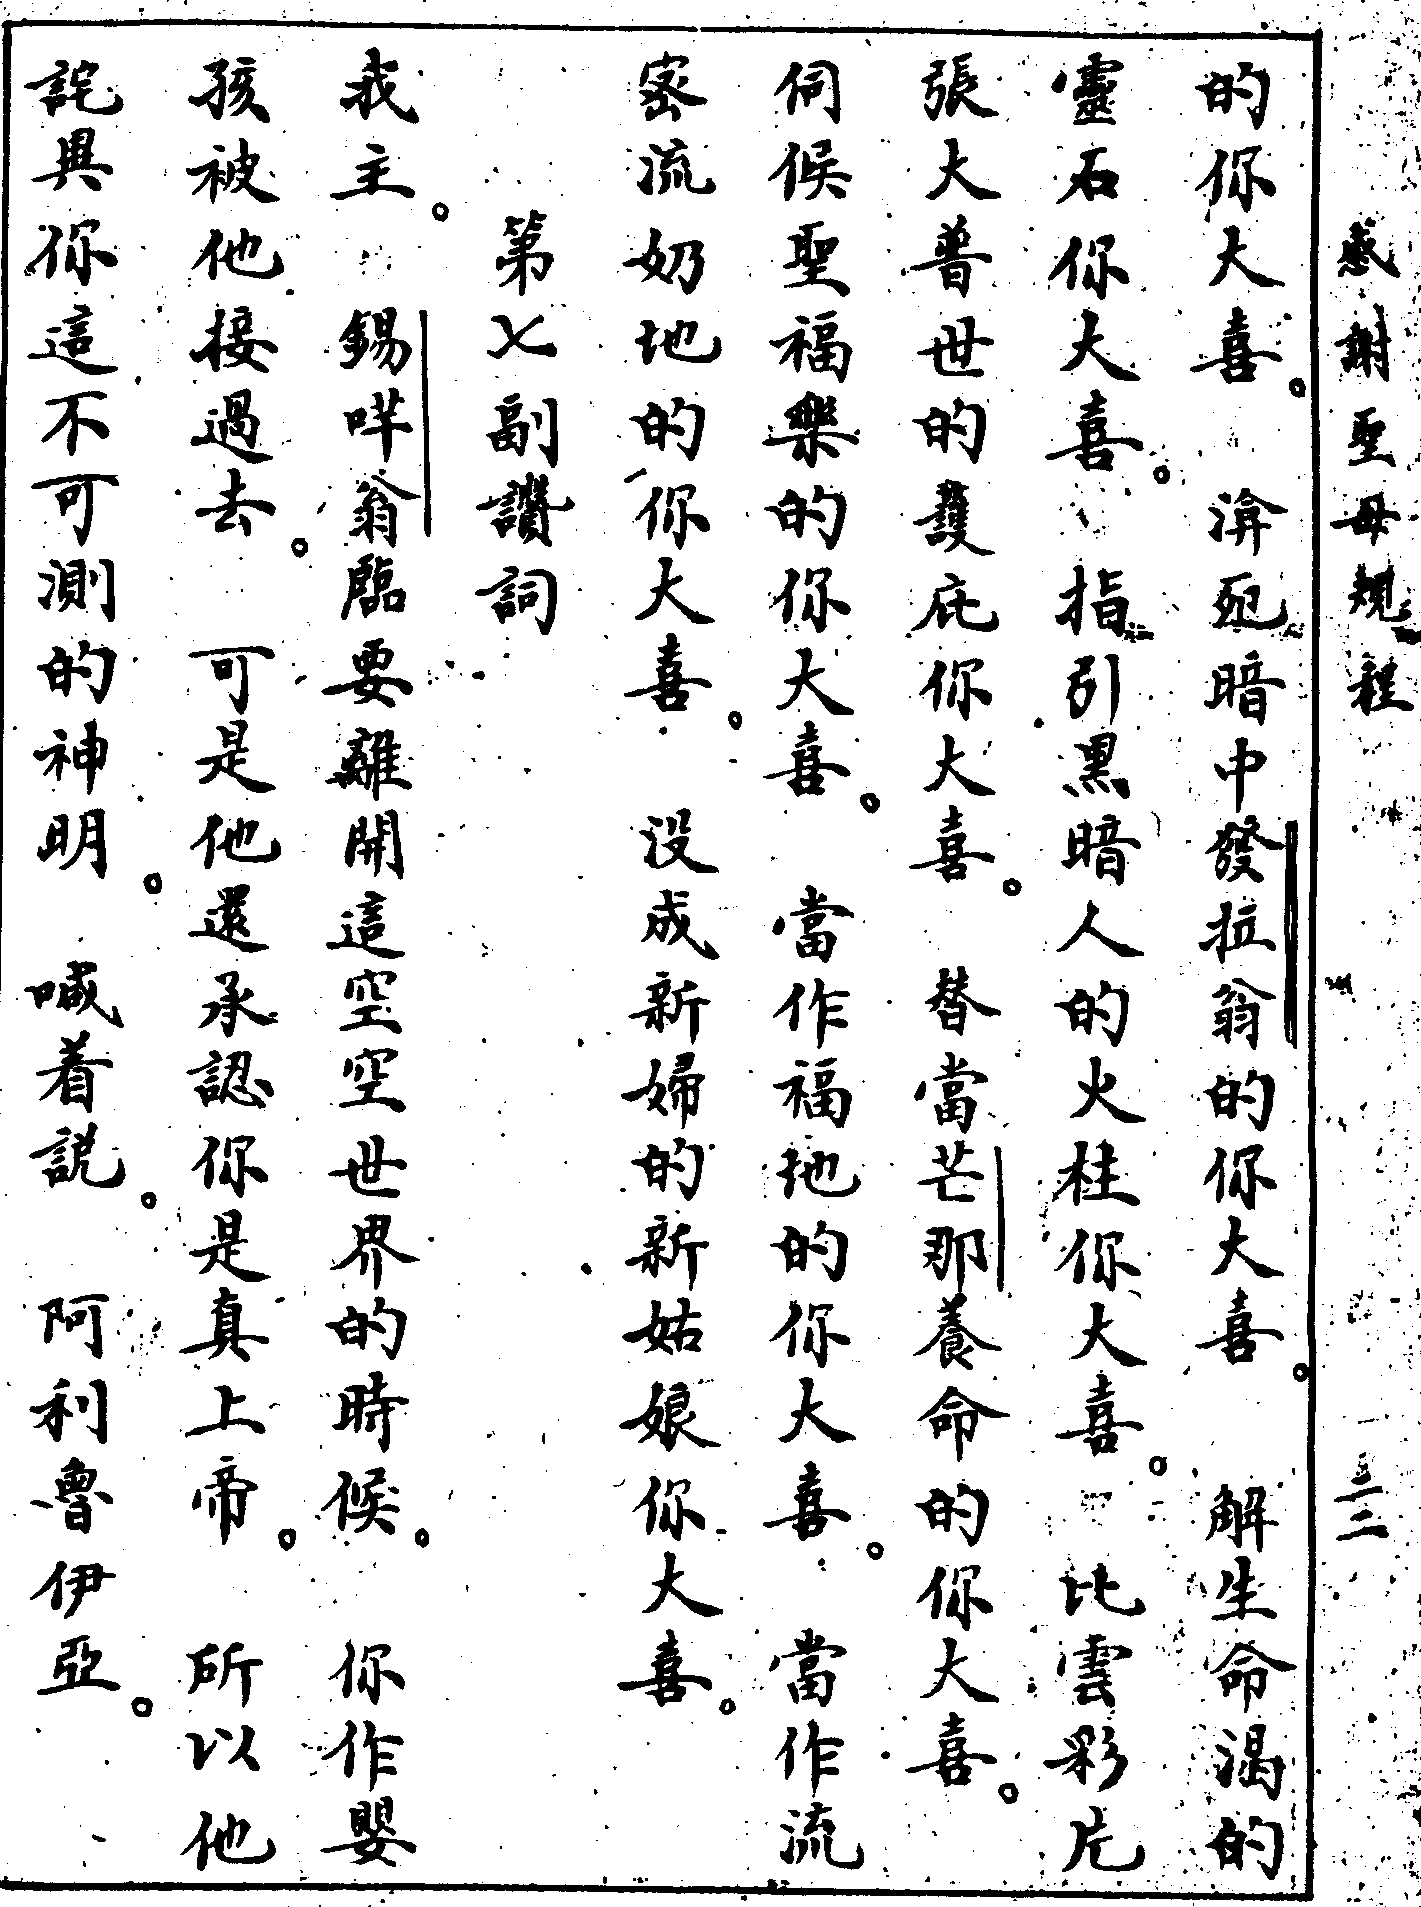 感謝聖母規程 三二
的你大喜。 渰死暗中發拉翁的你大喜。 解生命渴的
靈石你大喜。 指引黑暗人的火柱你大喜。 比雲彩片
張大普世的護庇你大喜。 替當芒那養命的你大喜。
伺候聖福樂的你大喜。 當作福地的你大喜。 當作流
密流奶地的你大喜。 没成新婦的新姑娘你大喜。
第七副讚詞
我主。 錫咩翁臨要離開這空空世界的時候。 你作嬰
孩被他接過去。 可是他還承認你是真上帝。 所以他
詫異你這不可測的神明。 喊着説。 阿利魯伊亞。